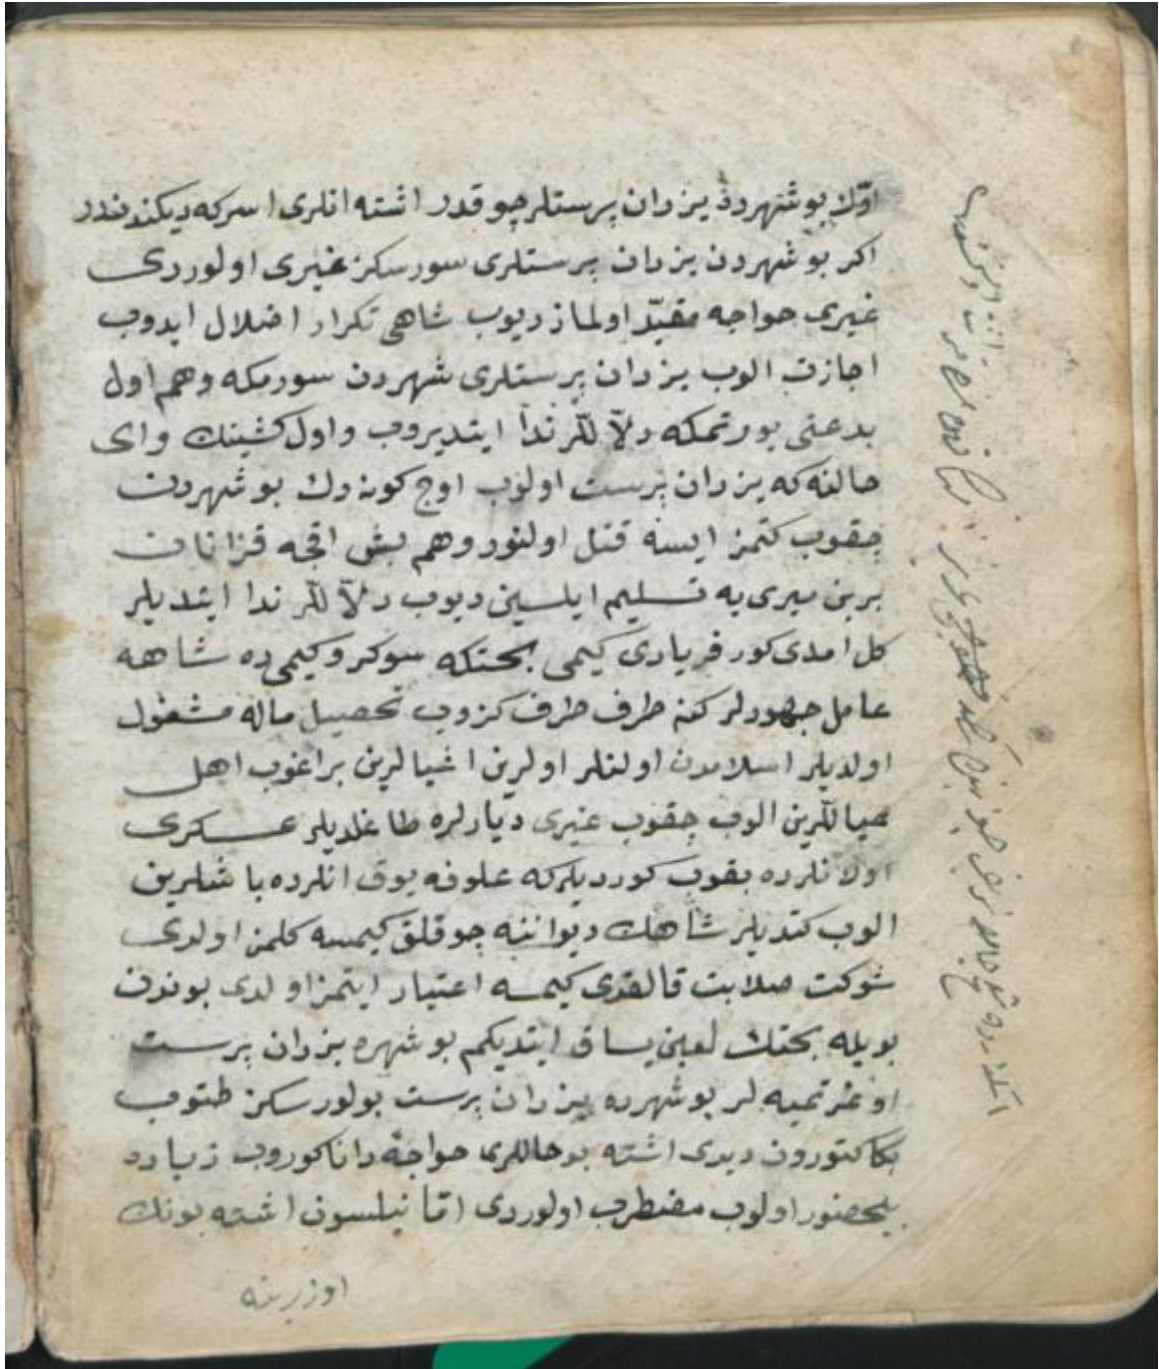 اوّلا بو شهرده یزدان پرستلر چوقدر اشته انلری اسرکه دیکندندر
اکر بو شهردن یزدان پرستلری سورسکز غیری اولوردی
غیری خواجه مقیّد اولماز دیوب شاهی تکرار اضلال ایدوب
اجازت الوب یزدان پرستلری شهردن سورمکه وهم اول
بدعتی یورتمکه دلّاللر ندا ایتدیروب واول کشینك وای
حالنه که یزدان پرست اولوب اوچ کونه دك بو شهردن
چقوب کتمز ایسه قتل اولنور وهم بش اقچه قزانان
برین میری یه تسلیم ایلسین دیوب دلّاللر ندا ایتدیلر
کل امدی کور فریادی کیمی بختکه سوکر وکیمی ده شاهه
عامل جهودلر کنه طرف طرف کزوب تحصیل ماله مشغول
اولدیلر اسلامدن اولنلر اولرین اشیالرین براغوب اهل
عیاللرین الوب چقوب غیری دیارلره طاغلدیلر عسکری
اولانلرده بقوب کوردیلرکه علوفه یوق انلرده باشلرین
الوب کتدیلر شاهك دیواننه چوقلق کیمسه کلمز اولدی
شوکت صلابت قالمدی کیمسه اعتبار ایتمز اولدی بوندن
بویله بختك لعین یساق ایتدیکم بو شهره یزدان پرست
اوغرتمیه لر بو شهرده یزدان پرست بولورسکز طتوب
بکا کتورون دیدی اشته بو حاللری خواجه دانا کوروب زیاده
بیحضور اولوب مضطرب اولوردی امّا نیلسون اشته بونك
اوزرینه